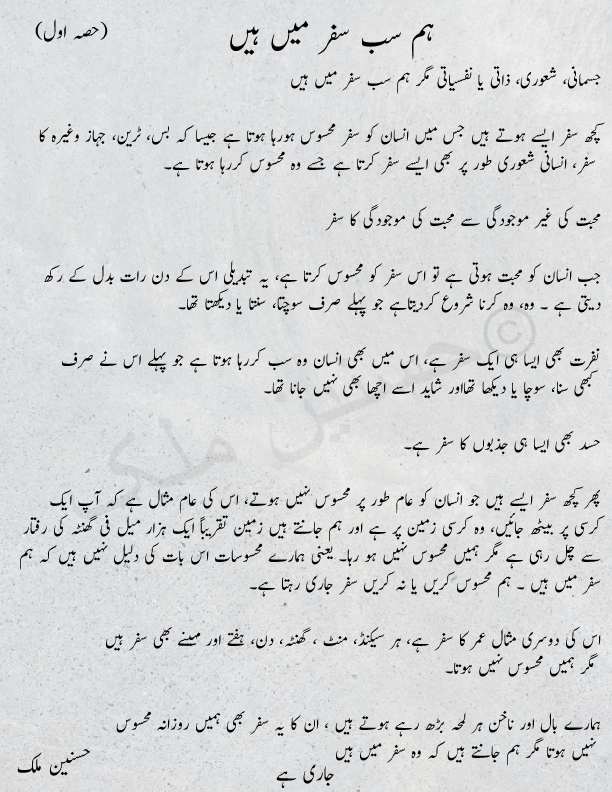 ہم سب سفر میں ہیں (حصہ اول)
جسمانی، شعوری، ذاتی یا نفسیاتی مگر ہم سب سفر میں ہیں
کچھ سفر ایسے ہوتے ہیں جس میں انسان کو سفر محسوس ہورہا ہوتا ہے جیسا کہ بس، ٹرین، جہاز وغیرہ کا
سفر، انسانی شعوری طور پر بھی ایسے سفر کرتا ہے جسے وہ محسوس کررہا ہوتا ہے۔
محبت کی غیر موجودگی سے محبت کی موجودگی کا سفر
جب انسان کو محبت ہوتی ہے تو اس سفر کو محسوس کرتا ہے، یہ تبدیلی اس کے دن رات بدل کے رکھ
دیتی ہے ۔ وہ، وہ کرنا شروع کردیتاہے جو پہلے صرف سوچتا، سنتا یا دیکھتا تھا۔
نفرت بھی ایسا ہی ایک سفر ہے، اس میں بھی انسان وہ سب کررہا ہوتا ہے جو پہلے اس نے صرف
کبھی سنا، سوچا یا دیکھا تھااور شاید اسے اچھا بھی نہیں جانا تھا۔
حسد بھی ایسا ہی جذبوں کا سفر ہے۔
پھر کچھ سفر ایسے ہیں جو انسان کو عام طور پر محسوس نہیں ہوتے، اس کی عام مثال ہے کہ آپ ایک
کرسی پر بیٹھ جائیں، وہ کرسی زمین پر ہے اور ہم جانتے ہیں زمین تقریباً ایک ہزار میل فی گھنٹہ کی رفتار
سے چل رہی ہے مگر ہمیں محسوس نہیں ہو رہا۔ یعنی ہمارے محسوسات اس بات کی دلیل نہیں ہیں کہ ہم
سفر میں ہیں ۔ ہم محسوس کریں یا نہ کریں سفر جاری رہتا ہے۔
اس کی دوسری مثال عمر کا سفر ہے، ہر سیکنڈ، منٹ ، گھنٹہ، دن، ہفتے اور مہینے بھی سفر ہیں
مگر ہمیں محسوس نہیں ہوتا۔
ہمارے بال اور ناخن ہر لمحہ بڑھ رہے ہوتے ہیں ، ان کا یہ سفر بھی ہمیں روزانہ محسوس
نہیں ہوتا مگر ہم جانتے ہیں کہ وہ سفر میں ہیں
جاری ہے
حسنین ملک
© حسنین ملک